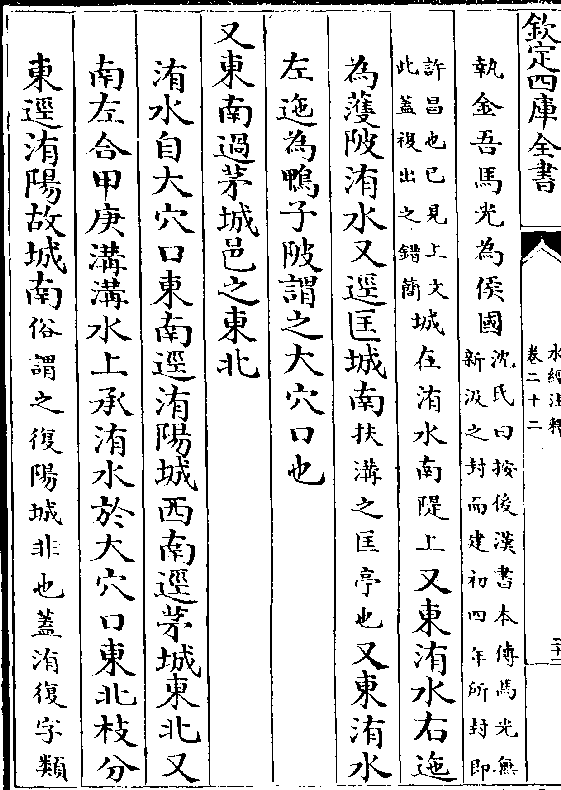 欽定四庫全書
水經注釋
卷二十二
執金吾馬光為侯國沈氏曰按後漢書本傳馬光無
新汲之封而建初四年所封即
許昌也已見上文
此蓋複出之錯簡城在洧水南隄上又東洧水右迤
為濩陂洧水又逕匡城南扶溝之匡亭也又東洧水
左迤為鴨子陂謂之大穴口也
又東南過茅城邑之東北
洧水自大穴口東南逕洧陽城西南逕茅城東北又
南左合甲庚溝溝水上承洧水於大穴口東北枝分
東逕洧陽故城南俗謂之復陽城非也蓋洧復字類